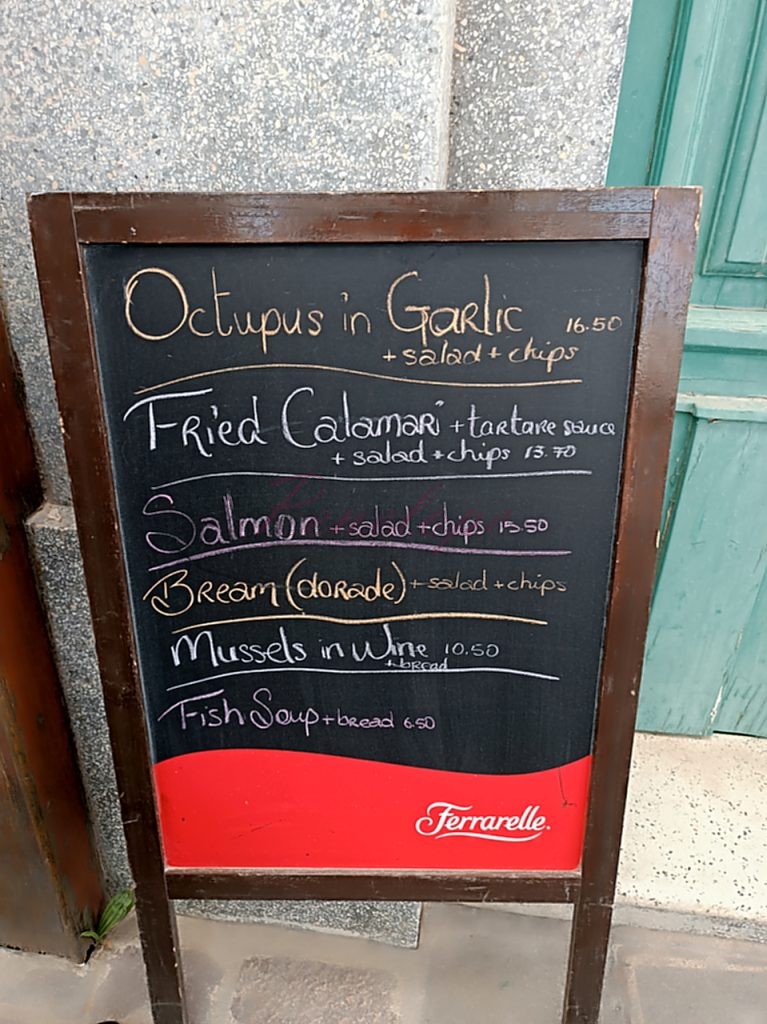 Octupus in Garlic 16.50
+ salad + chips
Fried Calamari + tartare sauce
+ salad + chips 13.70
Salmon + salad + chips 15.50
Bream (dorade) + salad + chips
Mussels in Wine 10.50
+ bread
Fish Soup + bread 6.50
Ferrarelle